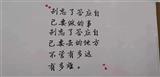 别忘了答应自
己要做的事
别忘了答应自
己要去的地方
不管有多远
有多难。